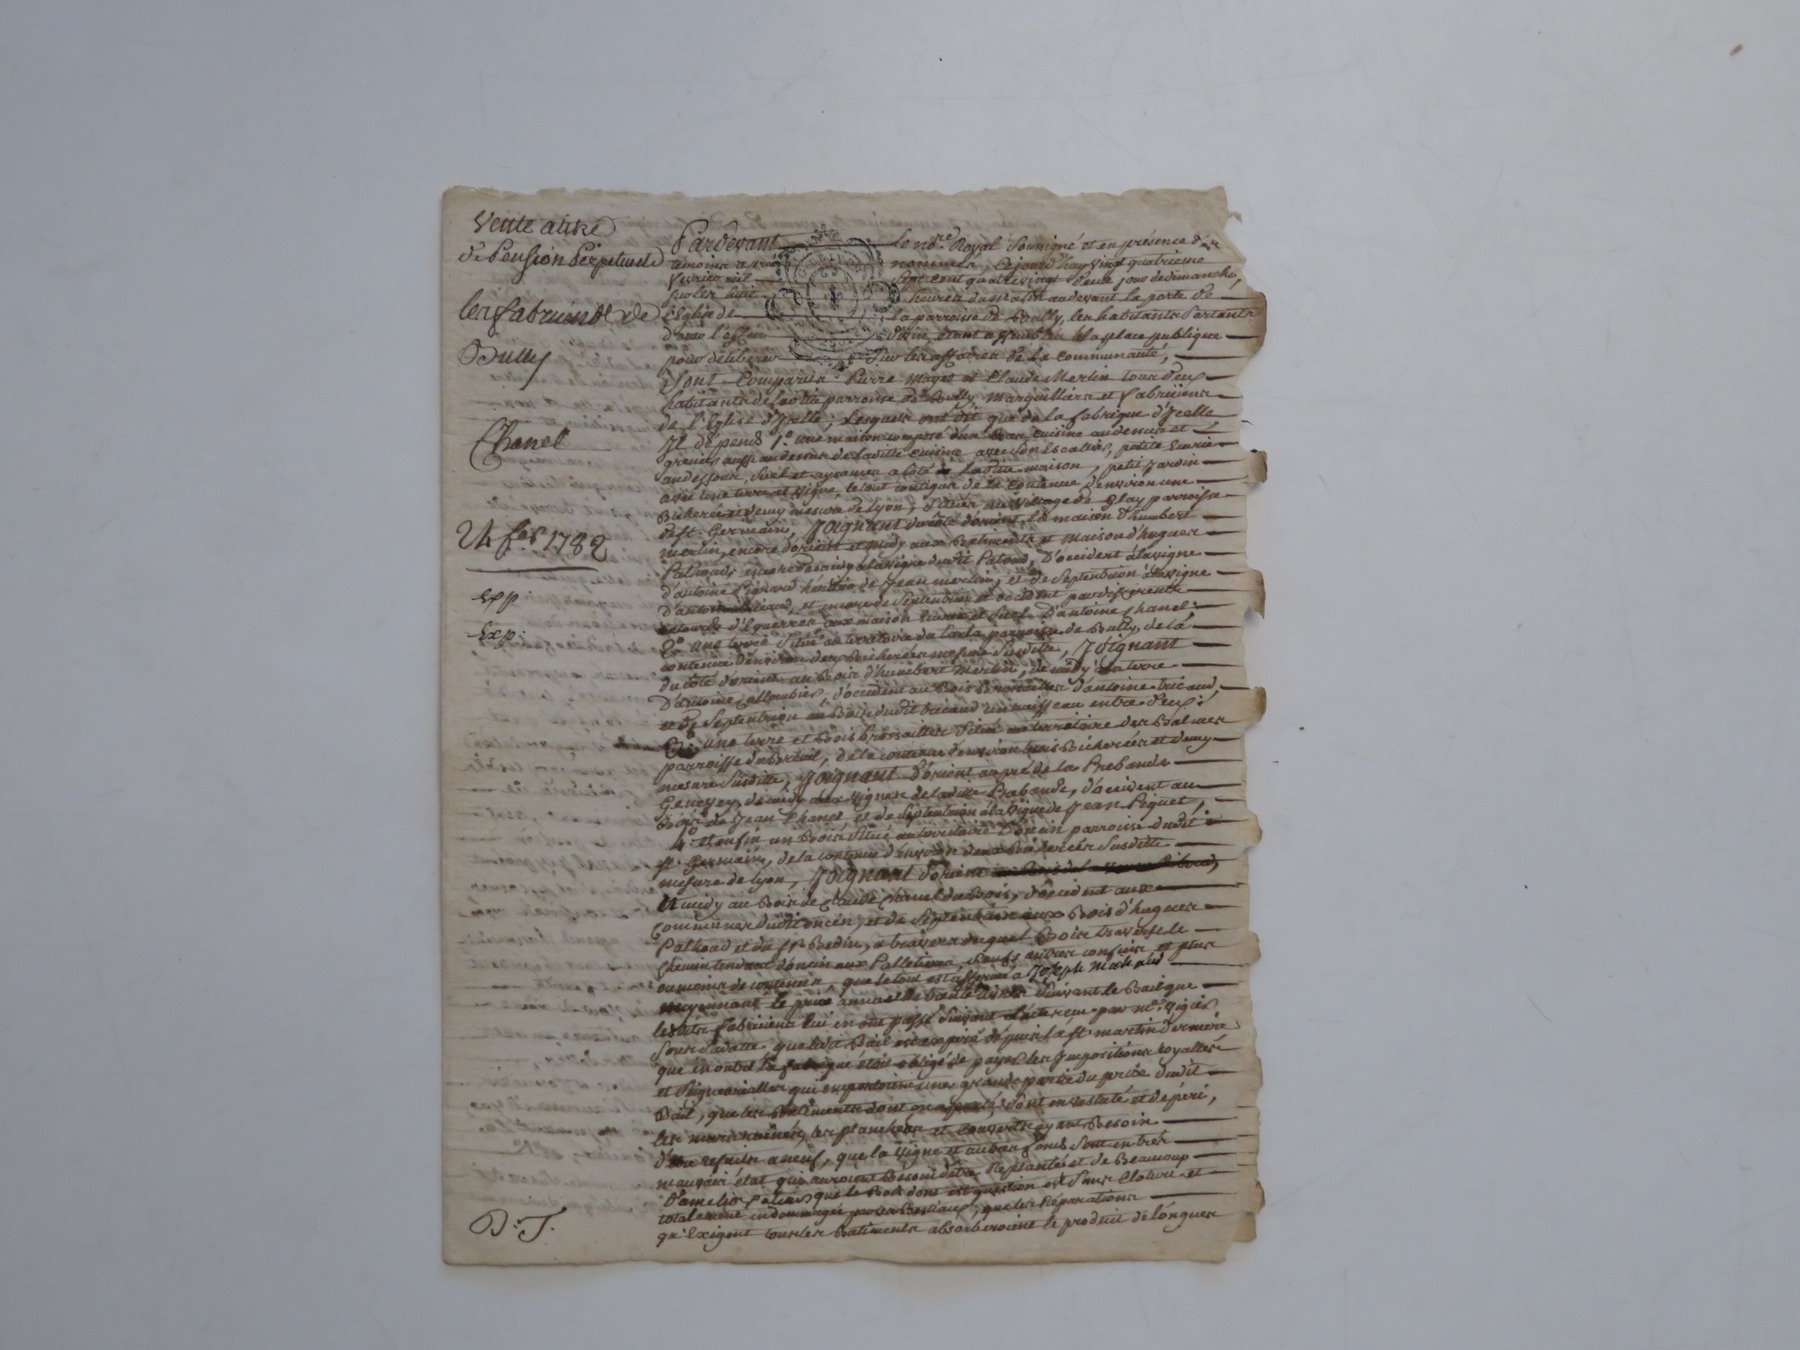 Vente a titre
de Pension Perpetuelle
les fabriciens de
Bully
Chanel
24 fer 1782
Exp:
Exp:
D. T.
Pardevant le nore Royal Soussigné et en présence des
témoins nommés, cejourd'huy vingt quatrieme
fevrier mil sept cent quatrevingt deux jour de dimanche,
sur les huit heures du matin audevant la porte de
l'Eglise de la parroisse de Bully, les habitants sortants
d'ouir l'office divin, étant assemblés à la place publique
pour déliberer sur les affaires de la Communauté,
Sont Comparus Pierre Maget et Claude Merlin tous deux
habitants de ladite parroisse de Bully Marguilliers et fabriciens
de l'Eglise d'Icelle, Lesquels ont dit que de la fabrique d'Icelle
Il dépend 1o une maison composé d'un Bas, cuisine audessus et
grenier aussi audessus de laditte cuisine avec son Escallier, petite Ecurie
audessous, Suel et aysances a Coté de Laditte maison, petit Jardin
avec une terre et Vigne, le tout contigus de la Contenue d'environ une
Bicherée et demy mesure de Lyon, Situés au Village de Glay parroisse
de St. Germain, Joignant du coté d'orient la maison d'humbert
merlin, encore d'orient et midy aux Batiments et Maison d'hugues
Palroud, encore de midy a la Vigne dudit Palroud, D'occident à la vigne
d'antoine Pignard héritier de Jean merlin, et de Septentrion à la Vigne
d'antoine et encore de Septentrion et occident par differents
retours d'Equerres aux maison Ecurie et Suel D'antoine Chanel;
2o une terre Située au territoire du parroisse de Bully, de la
contenue d'environ deux Bicherées mesure Susditte, Joignant
du coté d'orient au Bois d'humbert Merlin, de midy a la terre
D'antoine Collombier, d'occident au Bois Brossailles d'antoine tricaud,
et de Septentrion au Bois dudit tricaud un ruisseau entre deux;
3o une terre et Bois Brossailles Situé au territoire des Balmes
parroisse du Breuil, de la contenue d'environ trois Bicherées et demy
mesure Susditte, Joignant d'orient au pré de la Prebande
Genevey, de midy aux Vignes de laditte Prebande, d'occident au
Bois de Jean Chanel et de Septentrion à la Vigne de Jean Piguet,
4o et enfin un Bois Situé au territoire D'oncin parroisse dudit
St. Germain, de la contenue d'environ deux Bicherées Susditte
mesure de Lyon, Joignant d'orient
et midy au Bois de Claude Chanel du Bois, d'occident aux
Communes dudit oncin, et de Septentrion aux Bois d'hugues
Palroud et du Sr Bedin, a travers duquel Bois traverse le
Chemin tendant d'oncin aux Palletieres, saufs autres confins et plus
ou moins de contenue, que le tout est affermé a Joseph Michaud
moyennant le prix annuel de trente livres Suivant le Bail que
lesdits fabriciens lui en ont passé Suivant l'acte reçu par Me. Vigier
Sous sa datte que ledit Bail est expiré depuis la St. Martin derniere
que en outre la fabrique étoit obligé de payer les Impositions royalles
et Seigneurialles qui emportoient une grande partie du prix dudit
Bail, que les Batiments dont on a parlé, Sont en vestuté et dépéri,
les murs ruinés, les planchers et couverts ayant Besoin
d'être refaits a neuf, que la Vigne et autres fonds Sont en très
mauvais état qui auroient Besoin d'être Replantés et de Beaucoup
D'amelioration que le Bois dont est question est Sans Cloture et
totalement indommagée par les Bestiaux; que les réparations
qu'Exigent tous les Batiments absorberoient le produit de longues